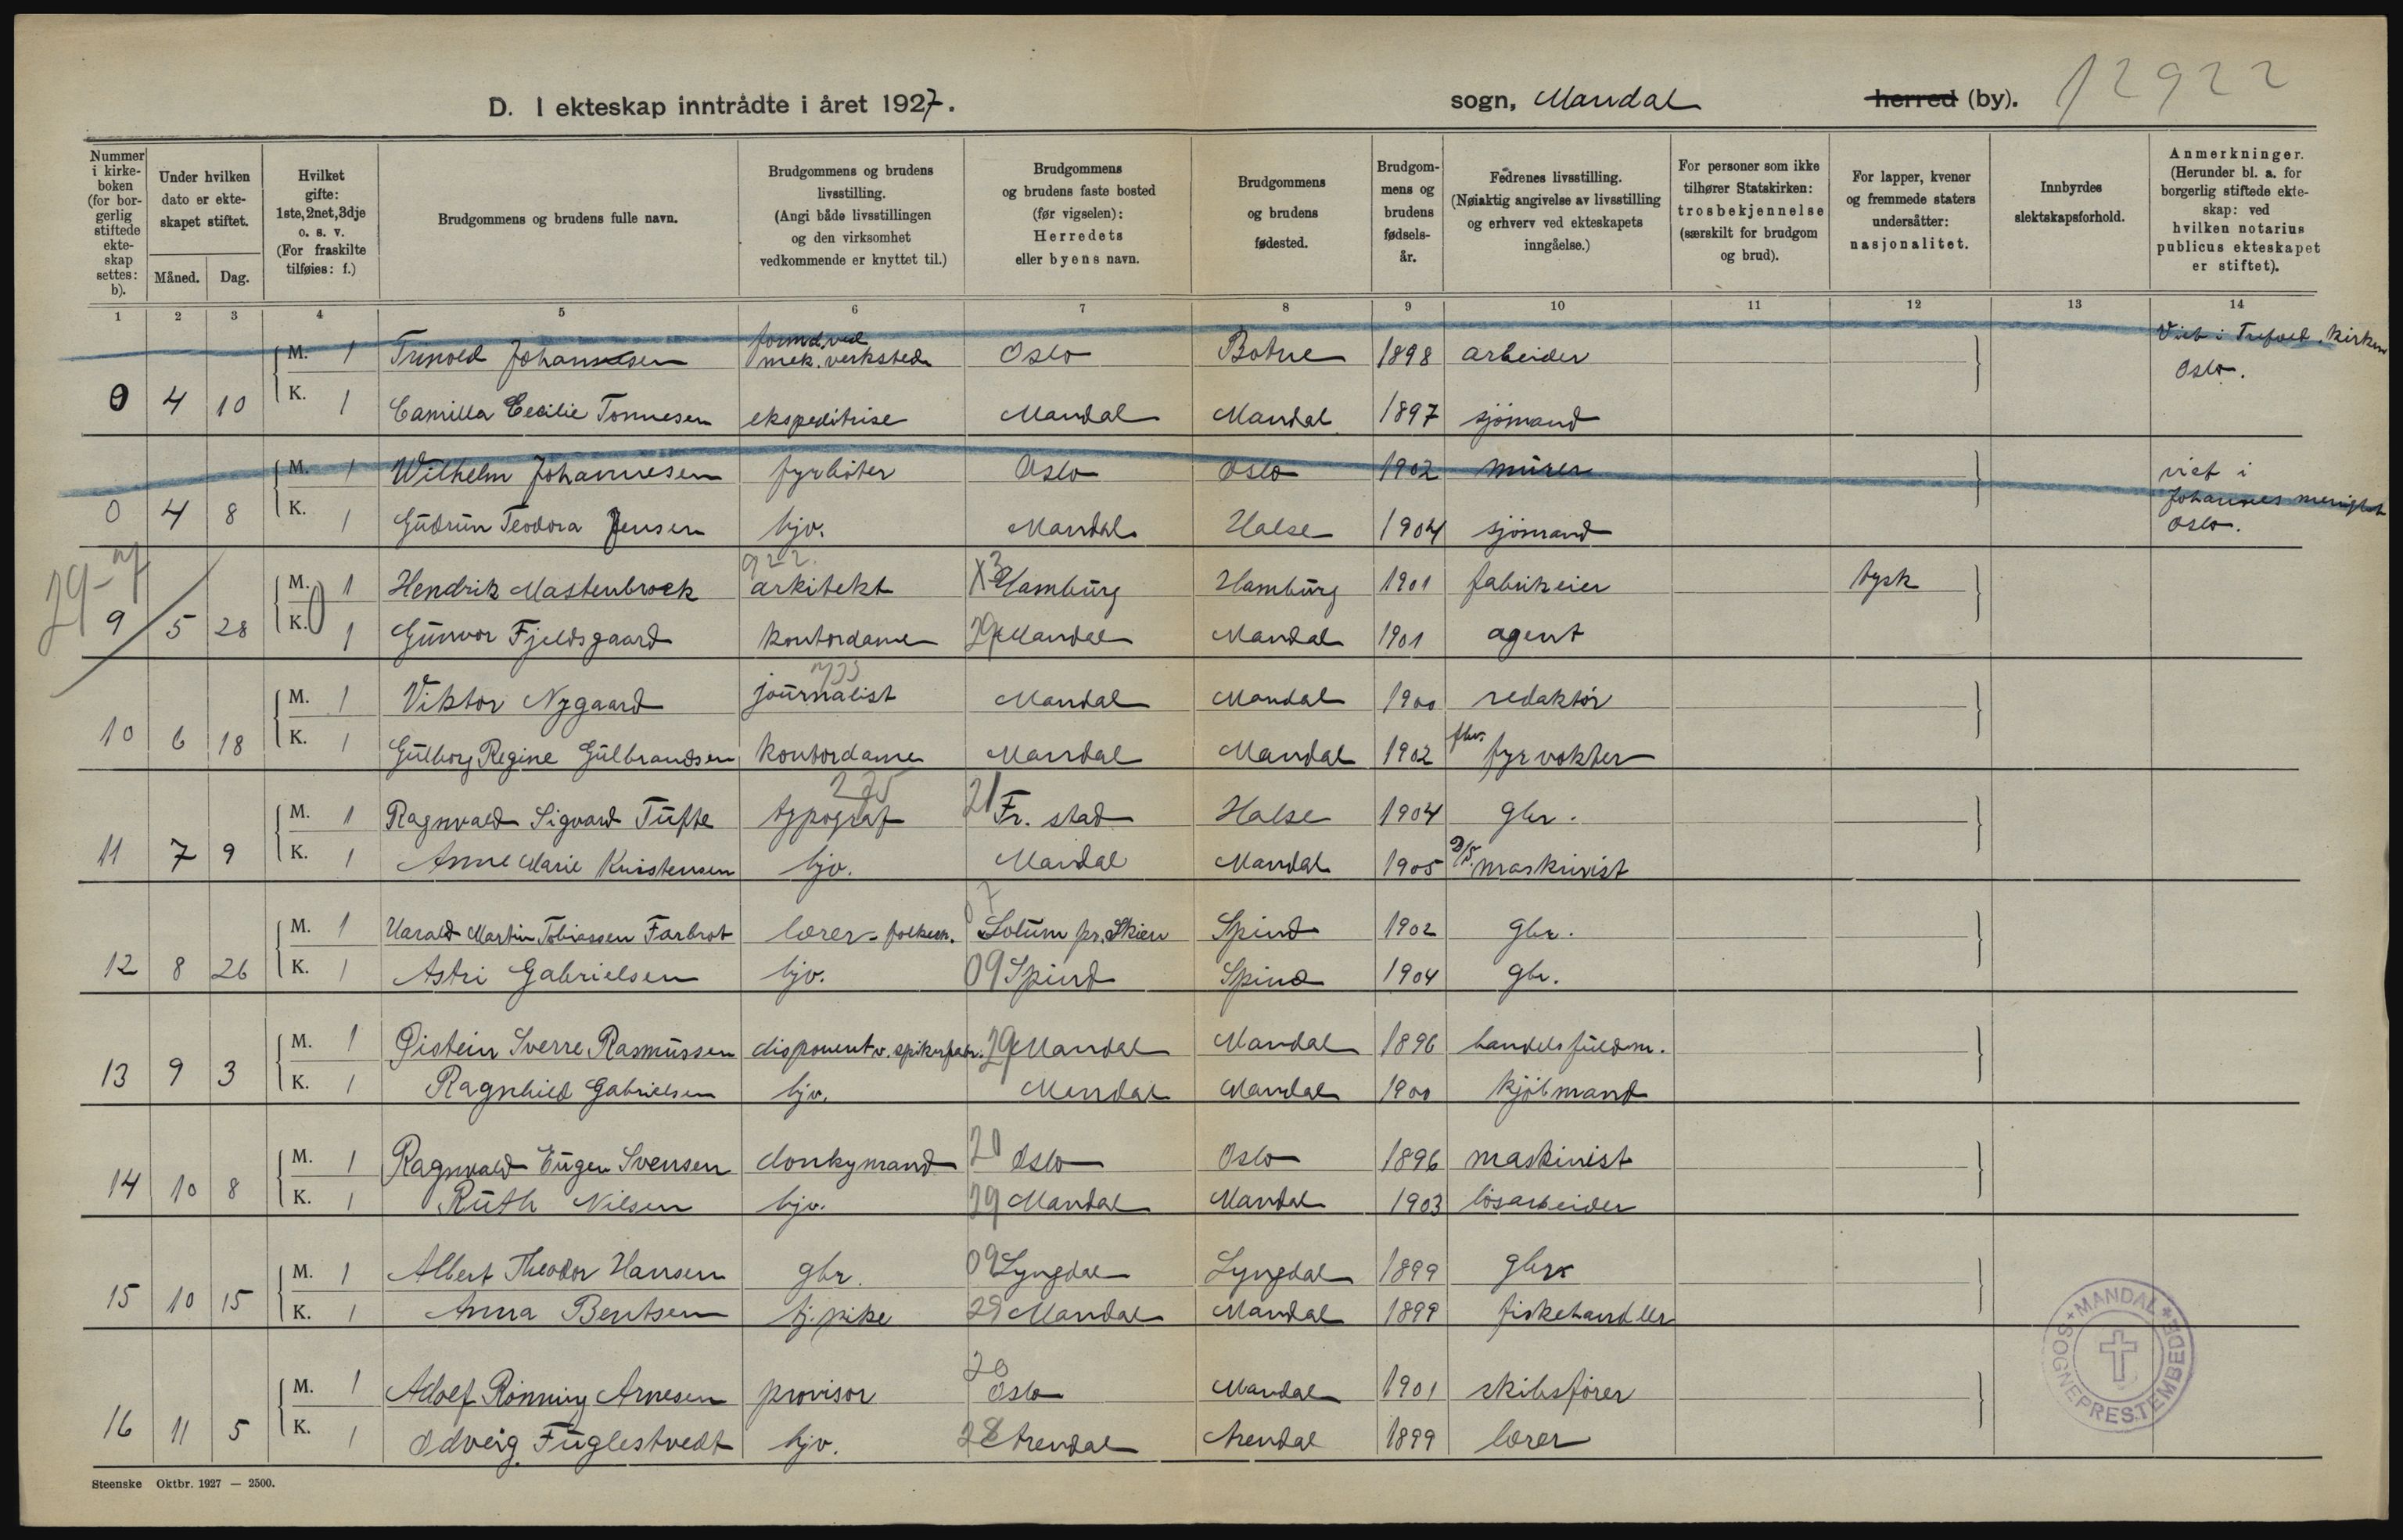 12922
D. I ekteskap inntrådte i året 1927.
sogn, Mandal herred (by).
Nummer i kirkeboken (for borgerlig stiftede ekteskap settes: b).
Under hvilken dato er ekteskapet stiftet.
Måned. Dag.
Hvilket gifte: 1ste, 2net, 3dje o. s. v. (For fraskilte tilføies: f.)
Brudgommens og brudens fulle navn.
Brudgommens og brudens livsstilling. (Angi både livsstillingen og den virksomhet vedkommende er knyttet til.)
Brudgommens og brudens faste bosted (før vigselen): Herredets eller byens navn.
Brudgommens og brudens fødested.
Brudgommens og brudens fødselsår.
Fedrenes livsstilling. (Nøiaktig angivelse av livsstilling og erhverv ved ekteskapets inngåelse.)
For personer som ikke tilhører Statskirken: trosbekjennelse (særskilt for brudgom og brud).
For lapper, kvener og fremmede staters undersåtter: nasjonalitet.
Innbyrdes slektskapsforhold.
Anmerkninger. (Herunder bl. a. for borgerlig stiftede ekteskap: ved hvilken notarius publicus ekteskapet er stiftet).
1 2 3 4 5 6 7 8 9 10 11 12 13 14
M. 1 Johannesen formd. ved mek. verksted Oslo Botne 1898 arbeider Viet i kirken Oslo.
0 4 10 K. 1 Camilla Cecilie Tønnesen ekspeditrise Mandal Mandal 1897 sjömand
M. 1 Wilhelm Johannesen fyrböter Oslo Oslo 1902 murer viet i Johannes menighet Oslo.
0 4 8 K. 1 Gudrun Teodora Jensen hjv. Mandal Halse 1904 sjömand
29 922.
M. 1 Hendrik Mastenbroek arkitekt X3 Hamburg Hamburg 1901 fabrikeier tysk
9 5 28 K. 1 Gunvor Fjeldsgaard kontordame 29 Mandal Mandal 1901 agent
M. 1 Viktor Nygaard journalist Mandal Mandal 1900 redaktör
10 6 18 K. 1 Gulborg Regine Gulbrandsen kontordame Mandal Mandal 1902 fhv. fyrvokter
M. 1 Ragnvald Sigvard Tufte typograf 21 Fr. stad Halse 1904 gbr.
11 7 9 K. 1 Anne Marie Kristensen hjv. Mandal Mandal 1905 D/S. maskinist
M. 1 Harald Martin Tobiassen Farbrot lærer - folkesk. Solum pr. Skien Spind 1902 gbr.
12 8 26 K. 1 Astri Gabrielsen hjv. 09 Spind Spind 1904 gbr.
M. 1 Øistein Sverre Rasmussen disponent v. spikerfabr. 29 Mandal Mandal 1896 handelsfuldm.
13 9 3 K. 1 Ragnhild Gabrielsen hjv. Mandal Mandal 1900 kjöbmand
M. 1 Ragnvald Eugen Svensen donkymand 20 Oslo Oslo 1896 maskinist
14 10 8 K. 1 Ruth Nilsen hjv. 29 Mandal Mandal 1903 lösarbeider
M. 1 Albert Theodor Hansen gbr. 09 Lyngdal Lyngdal 1899 gbr
15 10 15 K. 1 Anna Bentsen tj. pike 29 Mandal Mandal 1899 fiskehandler
M. 1 Adolf Rönning Arnesen provisor 20 Oslo Mandal 1901 skibsförer
16 11 5 K. 1 Odveig Fuglestvedt hjv. 28 Arendal Arendal 1899 lærer
MANDAL SOGNEPRESTEMBEDE
Steenske Oktbr. 1927 — 2500.